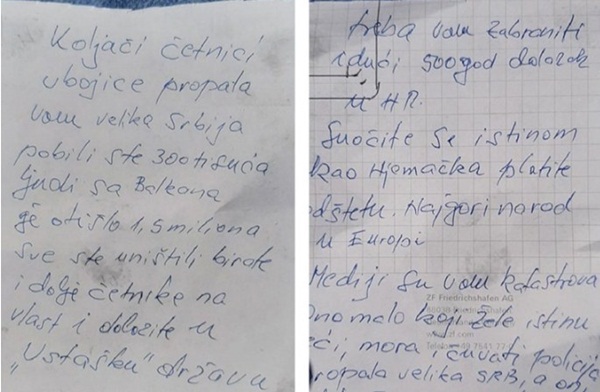 Koljači četnici
ubojice propala
vam velika Srbija
pobili ste 300 tisuća
ljudi sa Balkana
je otišlo 1,5 miliona
sve ste uništili birate
i dolje četnike na
vlast i dolazite u
„Ustašku" državu
treba vam zabraniti
idući 500 god dolazak
u HR.
Suočite se istinom
kao Njemačka platite
odštetu. Najgori narod
u Europi
Mediji su vam katastrova
ono malo koji žele istinu
ZF Friedrichshafen AG
www.zf.com
Telefon +49 7541 77
mora i čuvati policija
propala velika SRB, a on